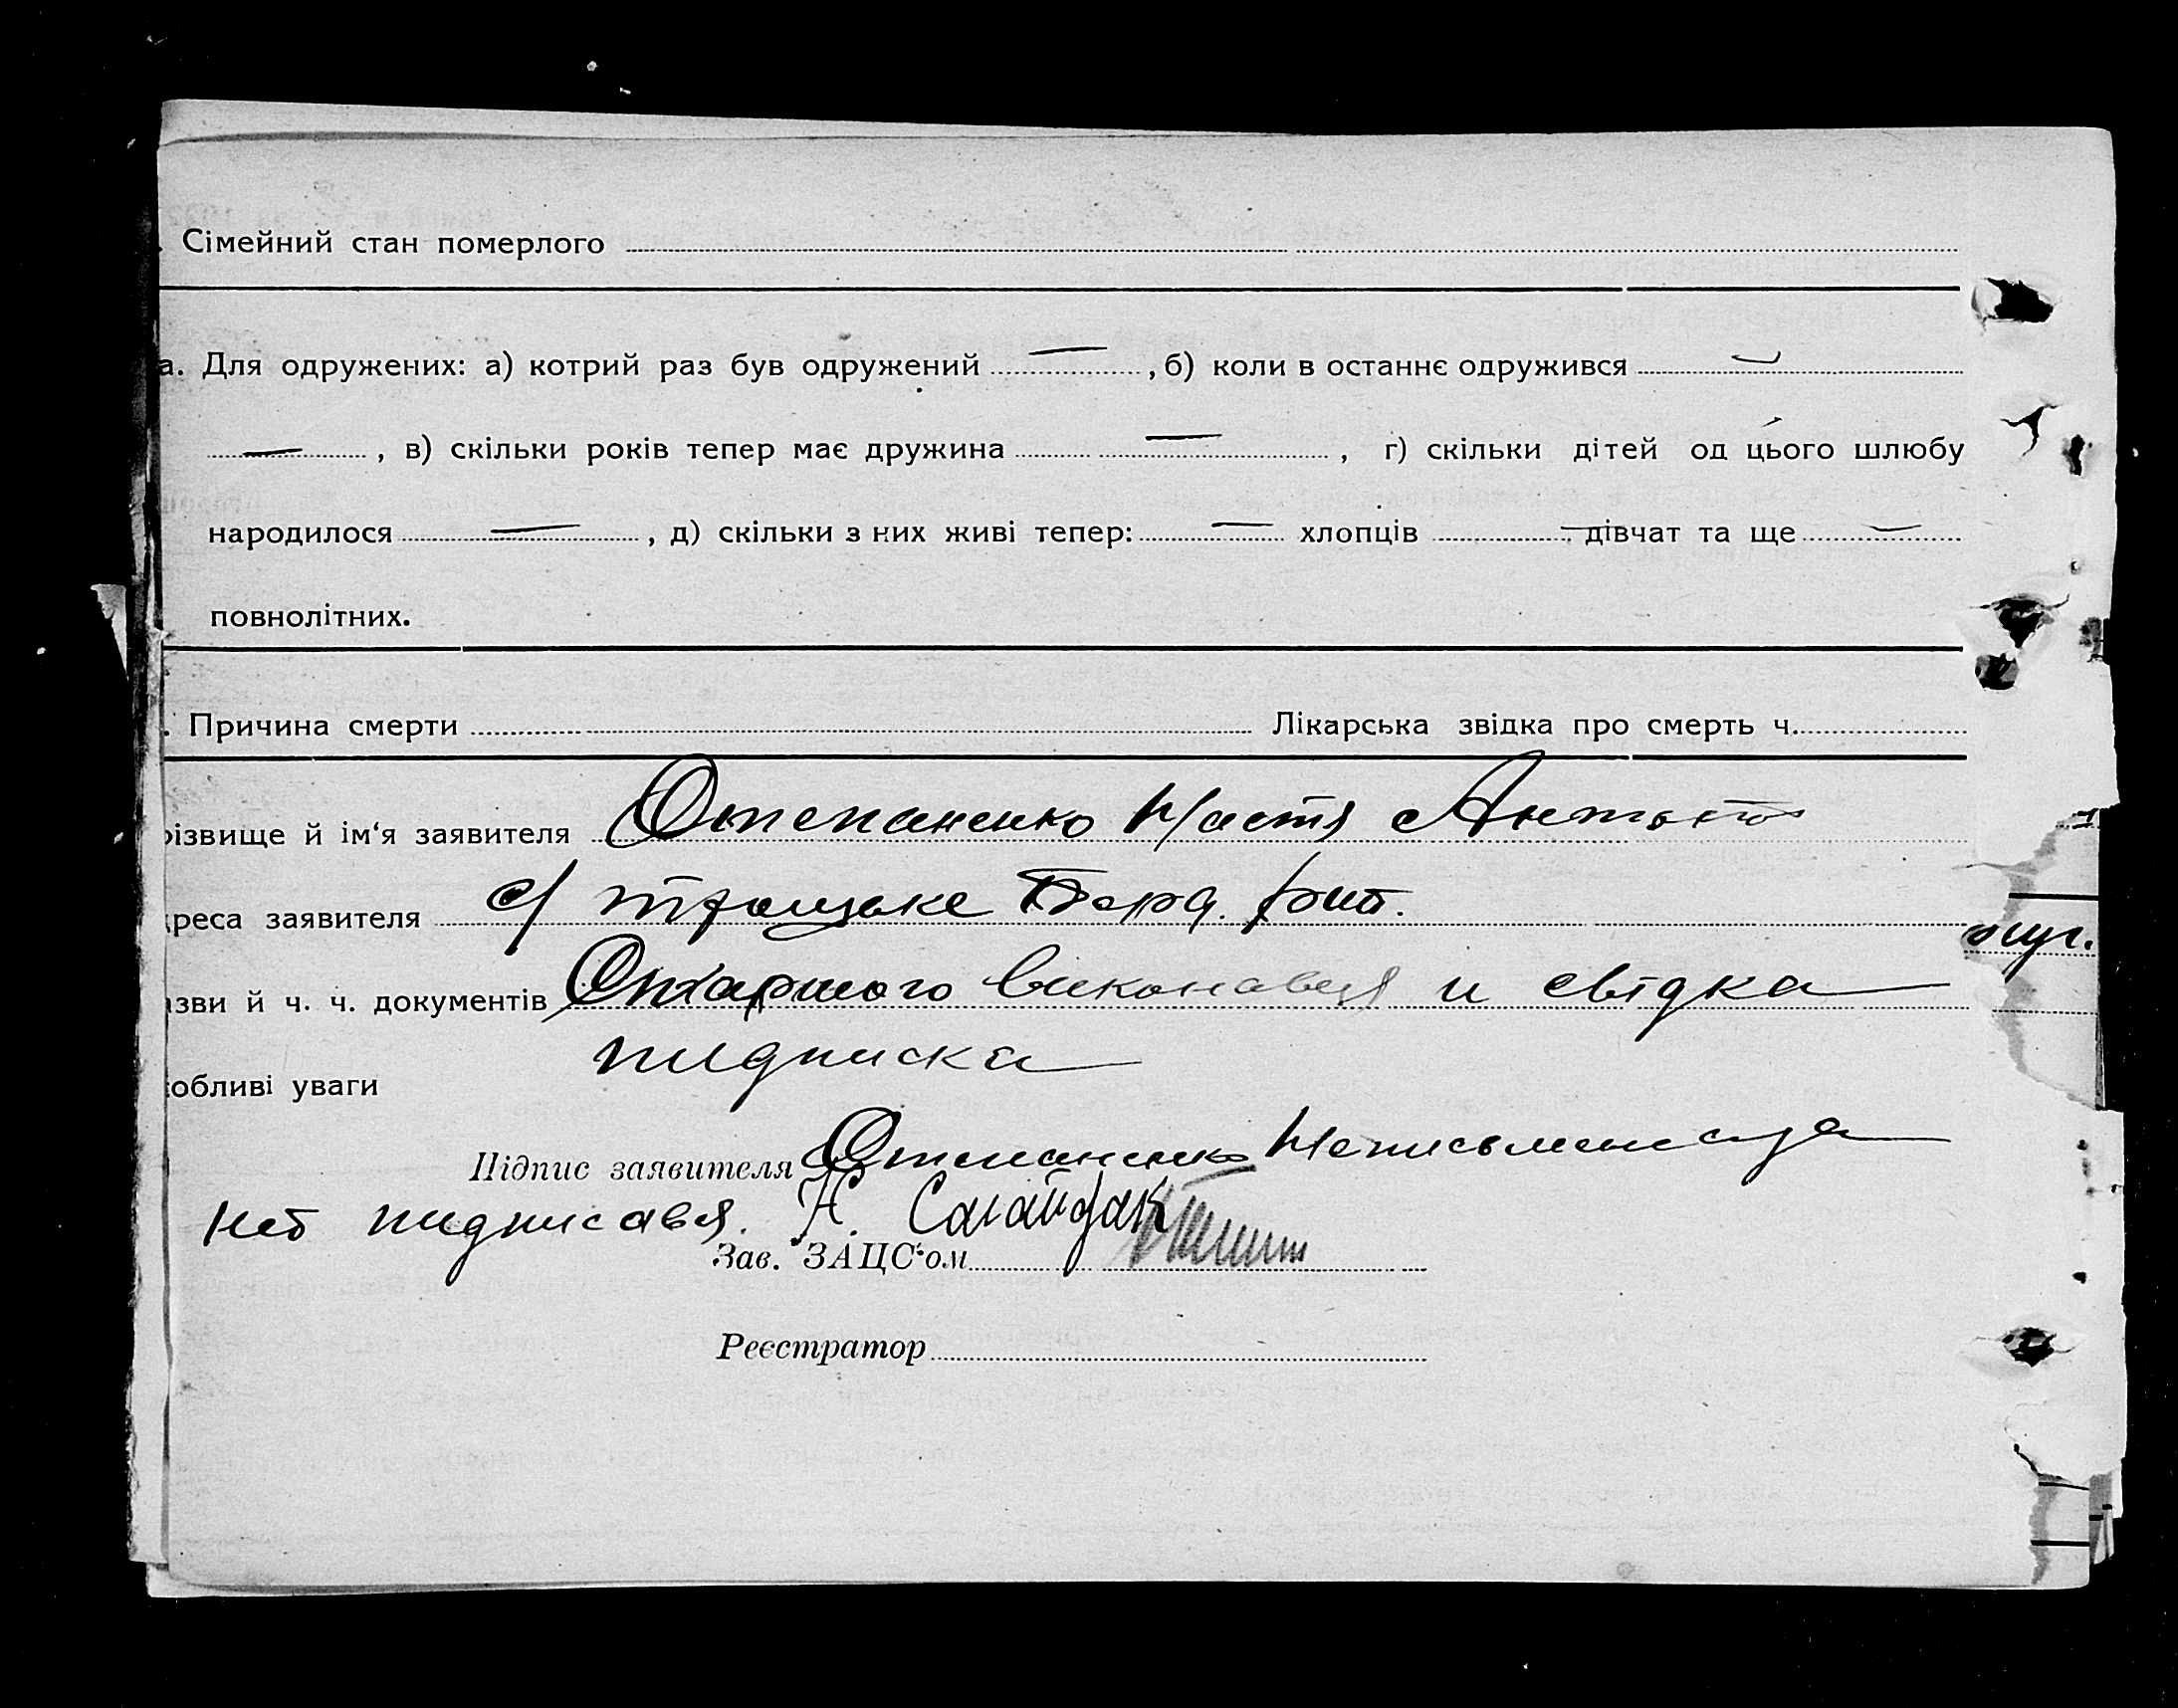 Сімейний стан померлого
а. Для одружених: а) котрий раз був одружений — , б) коли в останнє одружився —
— , в) скільки років тепер має дружина — , г) скільки дітей од цього шлюбу
народилося — , д) скільки з них живі тепер: — хлопців — дівчат та ще —
повнолітних.
Причина смерти Лікарська звідка про смерть ч.
різвище й ім‘я заявителя Степаненко Настя
дреса заявителя с/ Троицьке
азви й ч. ч. документів Старшого виконавця и свідка
пидписка
собливі уваги
Підпис заявителя Степаненко Неписьменна за
неї пидписався. Н. Сагайдак
Зав. ЗАЦС‘ом
Реєстратор